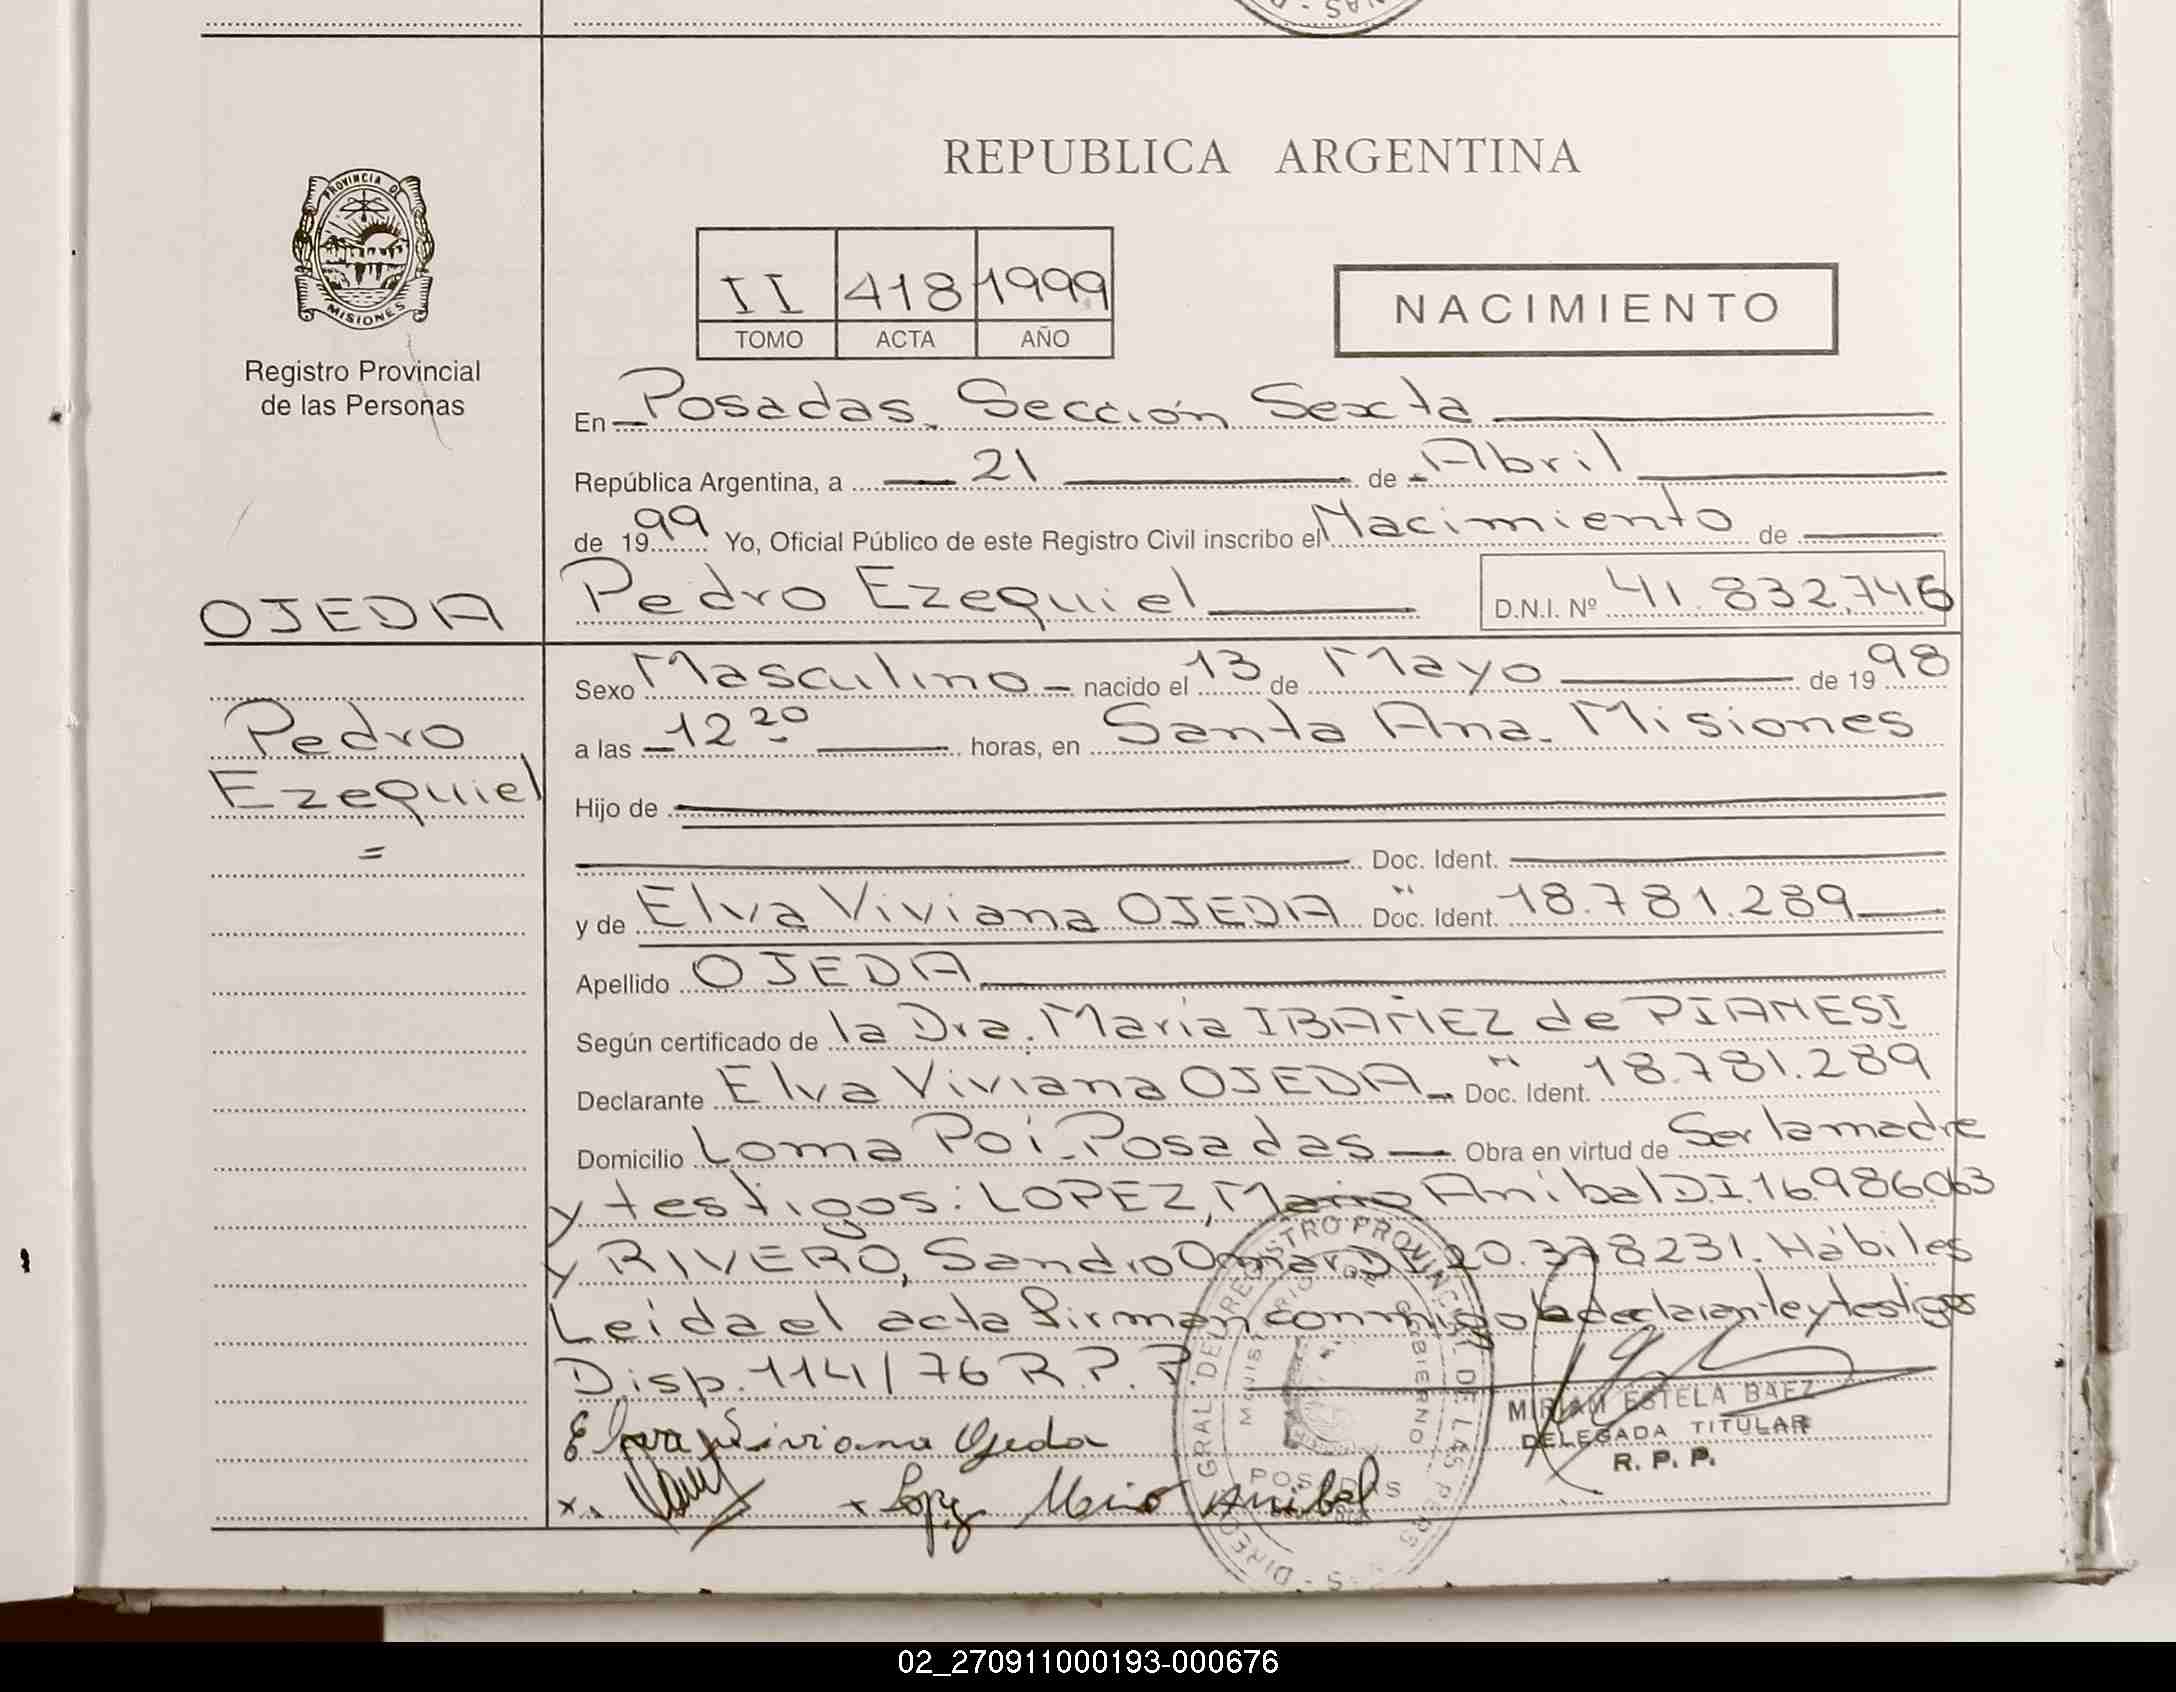 REPUBLICA ARGENTINA
PROVINCIA D
MISIONES
Registro Provincial
de las Personas
II 418 1999
TOMO ACTA AÑO
NACIMIENTO
En Posadas. Sección Sexta
República Argentina, a 21 de Abril
de 1999 Yo, Oficial Público de este Registro Civil inscribo el Nacimiento de
OJEDA
Pedro Ezequiel D.N.I. Nº 41.832.746
Pedro
Ezequiel
=
Sexo Masculino nacido el 13 de Mayo de 1998
a las 12 20 horas, en Santa Ana. Misiones
Hijo de
Doc. Ident.
y de Elva Viviana OJEDA Doc. Ident. 18.781.289
Apellido OJEDA
Según certificado de la Dra. Maria IBAÑEZ de PIANESI
Declarante Elva Viviana OJEDA Doc. Ident. 18.781.289
Domicilio Loma Poi. Posadas Obra en virtud de Ser la madre
y testigos: LOPEZ, Mario Anibal D.I. 16.986.063
y RIVERO, Sandro Omar D.I. 20.378231. Hábiles
Leida el acta firman conmigo la declarante y testigos
Disp. 114/76 R.P.P
MIRIAM ESTELA BAEZ
DELEGADA TITULAR
R. P. P.
Elva Viviana Ojeda
Lopez Mario Anibal
POSADAS
02_270911000193-000676